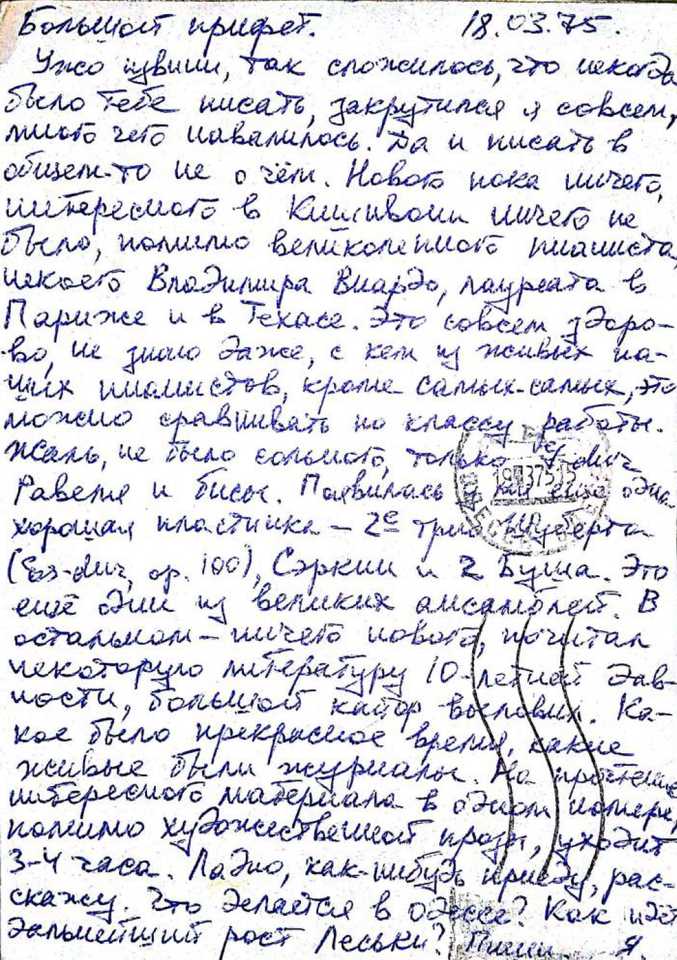 Большой привет. 18.03.75.
Ужо извини, так сложилось, что некогда
было тебе писать, закрутился я совсем,
много чего навалилось. Да и писать в
общем-то не о чём. Нового пока ничего,
интересного в Кишиневе ничего не
было, помимо великолепного пианиста,
некоего Владимира Виардо, лауреата в
Париже и в Техасе. Это совсем здоро-
во, не знаю даже, с кем из живых на-
ших пианистов, кроме самых-самых, это
можно сравнивать по классу работы.
Жаль, не было сольного, только G-dur
Равеля и бисы. Появилась ещё одна
хорошая пластинка – 2е трио Шуберта
(Es-dur, op. 100), Сэркин и 2 Буша. Это
ещё один из великих ансамблей. В
остальном – ничего нового, почитал
некоторую литературу 10-летней дав-
ности, большой набор
Ка-
кое было прекрасное время, какие
живые были журналы. На прочтение
интересного материала в одном номере,
помимо художественной прозы, уходит
3-4 часа. Ладно, как-нибудь приеду, рас-
скажу. Что делается в Одессе? Как идёт
дальнейший рост Леськи? Пиши. Я.